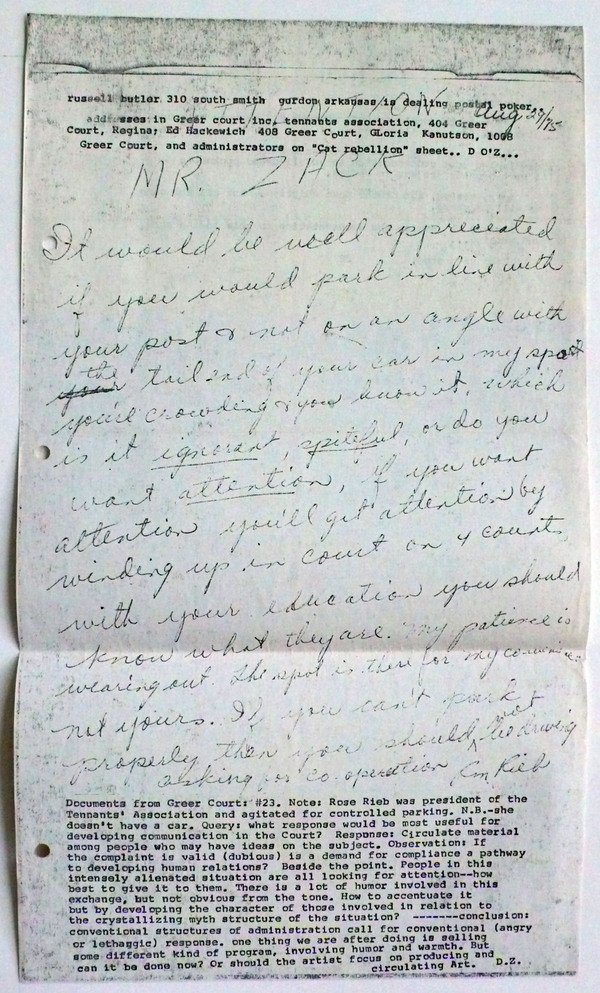 russell butler 310 south smith gurdon arkansas is dealing postal poker..
ATTENTION Aug 29/75
addresses in Greer court inc. tennants association, 404 Greer
Court, Regina; Ed Hackewich 408 Greer Court, GLoria Kanutson, 1098
Greer Court, and administrators on "Cat rebellion" sheet.. D O'Z...
MR. ZACK
It would be well appreciated
if you would park in line with
your post & not on an angle with
your the tail end of your car in my spot
you're crowding & you know it, which
is it ignorant, spiteful, or do you
want attention, if you want
attention you'll get attention by
winding up in court on 4 counts,
with your education you should
know what they are. My patience is
wearing out. The spot is there for my convenience
not yours. If you can't park
properly then you should not be driving
asking for co-operation Rieb
Documents from Greer Court: #23. Note: Rose Rieb was president of the
Tennants' Association and agitated for controlled parking. N.B.-she
doesn't have a car. Query: what response would be most useful for
developing communication in the Court? Response: Circulate material
among people who may have ideas on the subject. Observation: If
the complaint is valid (dubious) is a demand for compliance a pathway
to developing human relations? Beside the point. People in this
intensely alienated situation are all looking for attention--how
best to give it to them. There is a lot of humor involved in this
exchange, but not obvious from the tone. How to accentuate it
but by developing the character of those involved in relation to
the crystallizing myth structure of the situation? -------conclusion:
conventional structures of administration call for conventional (angry
or lethaggic) response. one thing we are after doing is selling
some different kind of program, involving humor and warmth. But
can it be done now? Or should the artist focus on producing and
circulating Art. D.Z.